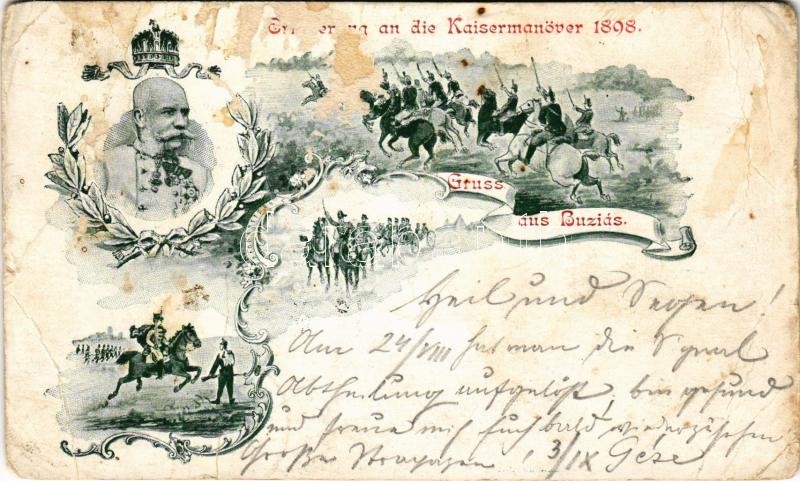 Erinnerung an die Kaisermanöver 1898.
Gruss
aus Buziás.
Heil und Segen!
Am 24/VIII hat man die Signal
Abtheilung aufgelöst, bin gesund
und freue mich Euch bald wiederzusehen
Große 3/IX Géza